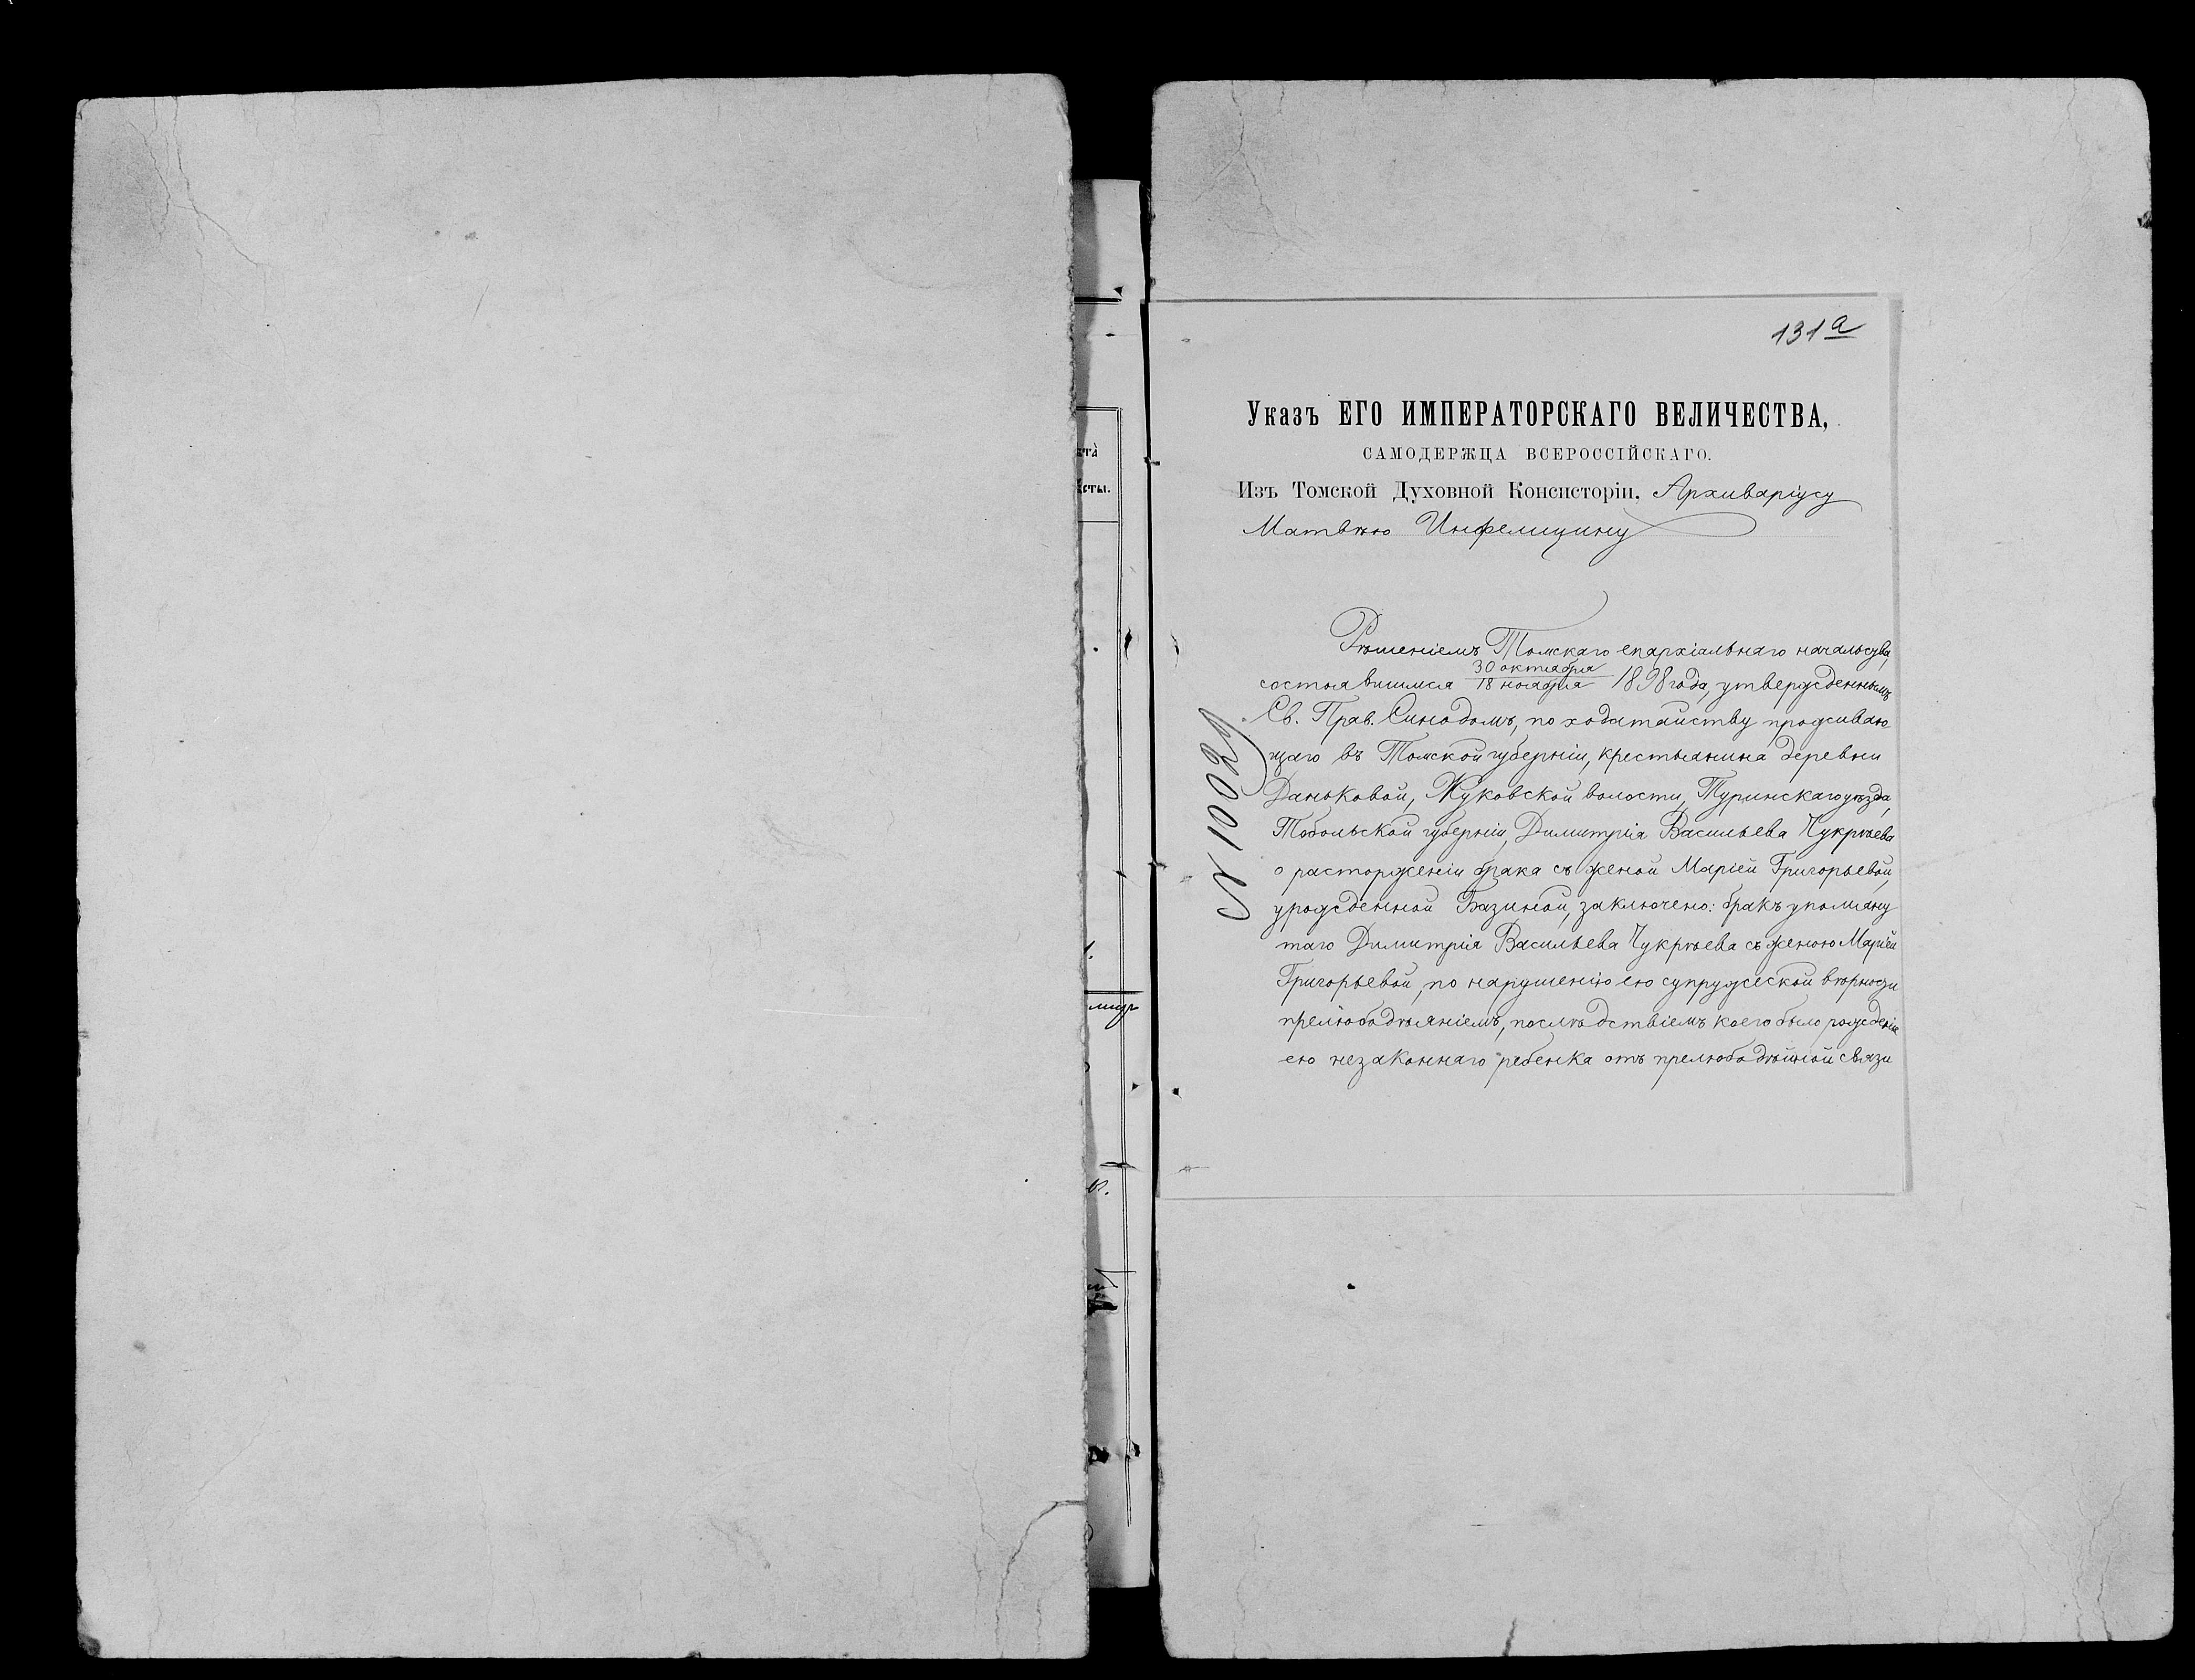 131а
Указъ ЕГО ИМПЕРАТОРСКАГО ВЕЛИЧЕСТВА,
САМОДЕРЖЦА ВСЕРОССІЙСКАГО.
Изъ Томской Духовной Консисторіи, Архиваріусу
Матвѣю Инфелицину
Рѣшеніемъ Томскаго епархіальнаго начальства,
состоявшимся 30 октября / 18 ноября 1898 года, утвержденнымъ
Св. Прав. Синодомъ, по ходатайству проживаю-
щаго въ Томской губерніи, крестьянина деревни
Даньковой, Жуковской волости, Туринскаго уѣзда,
Тобольской губерніи, Димитрія Васильева Чукрѣева
о расторженіи брака съ женой Маріей Григорьевой,
урожденной Базиной, заключено: бракъ упомяну-
таго Димитрія Васильева Чукрѣева съ женою Маріей
Григорьевой, по нарушенію ею супружеской вѣрности
прелюбодѣяніемъ, послѣдствіемъ коего было рожденіе
ею незаконнаго ребенка отъ прелюбодѣйной связи
№ 10021
кта
ѣсты.